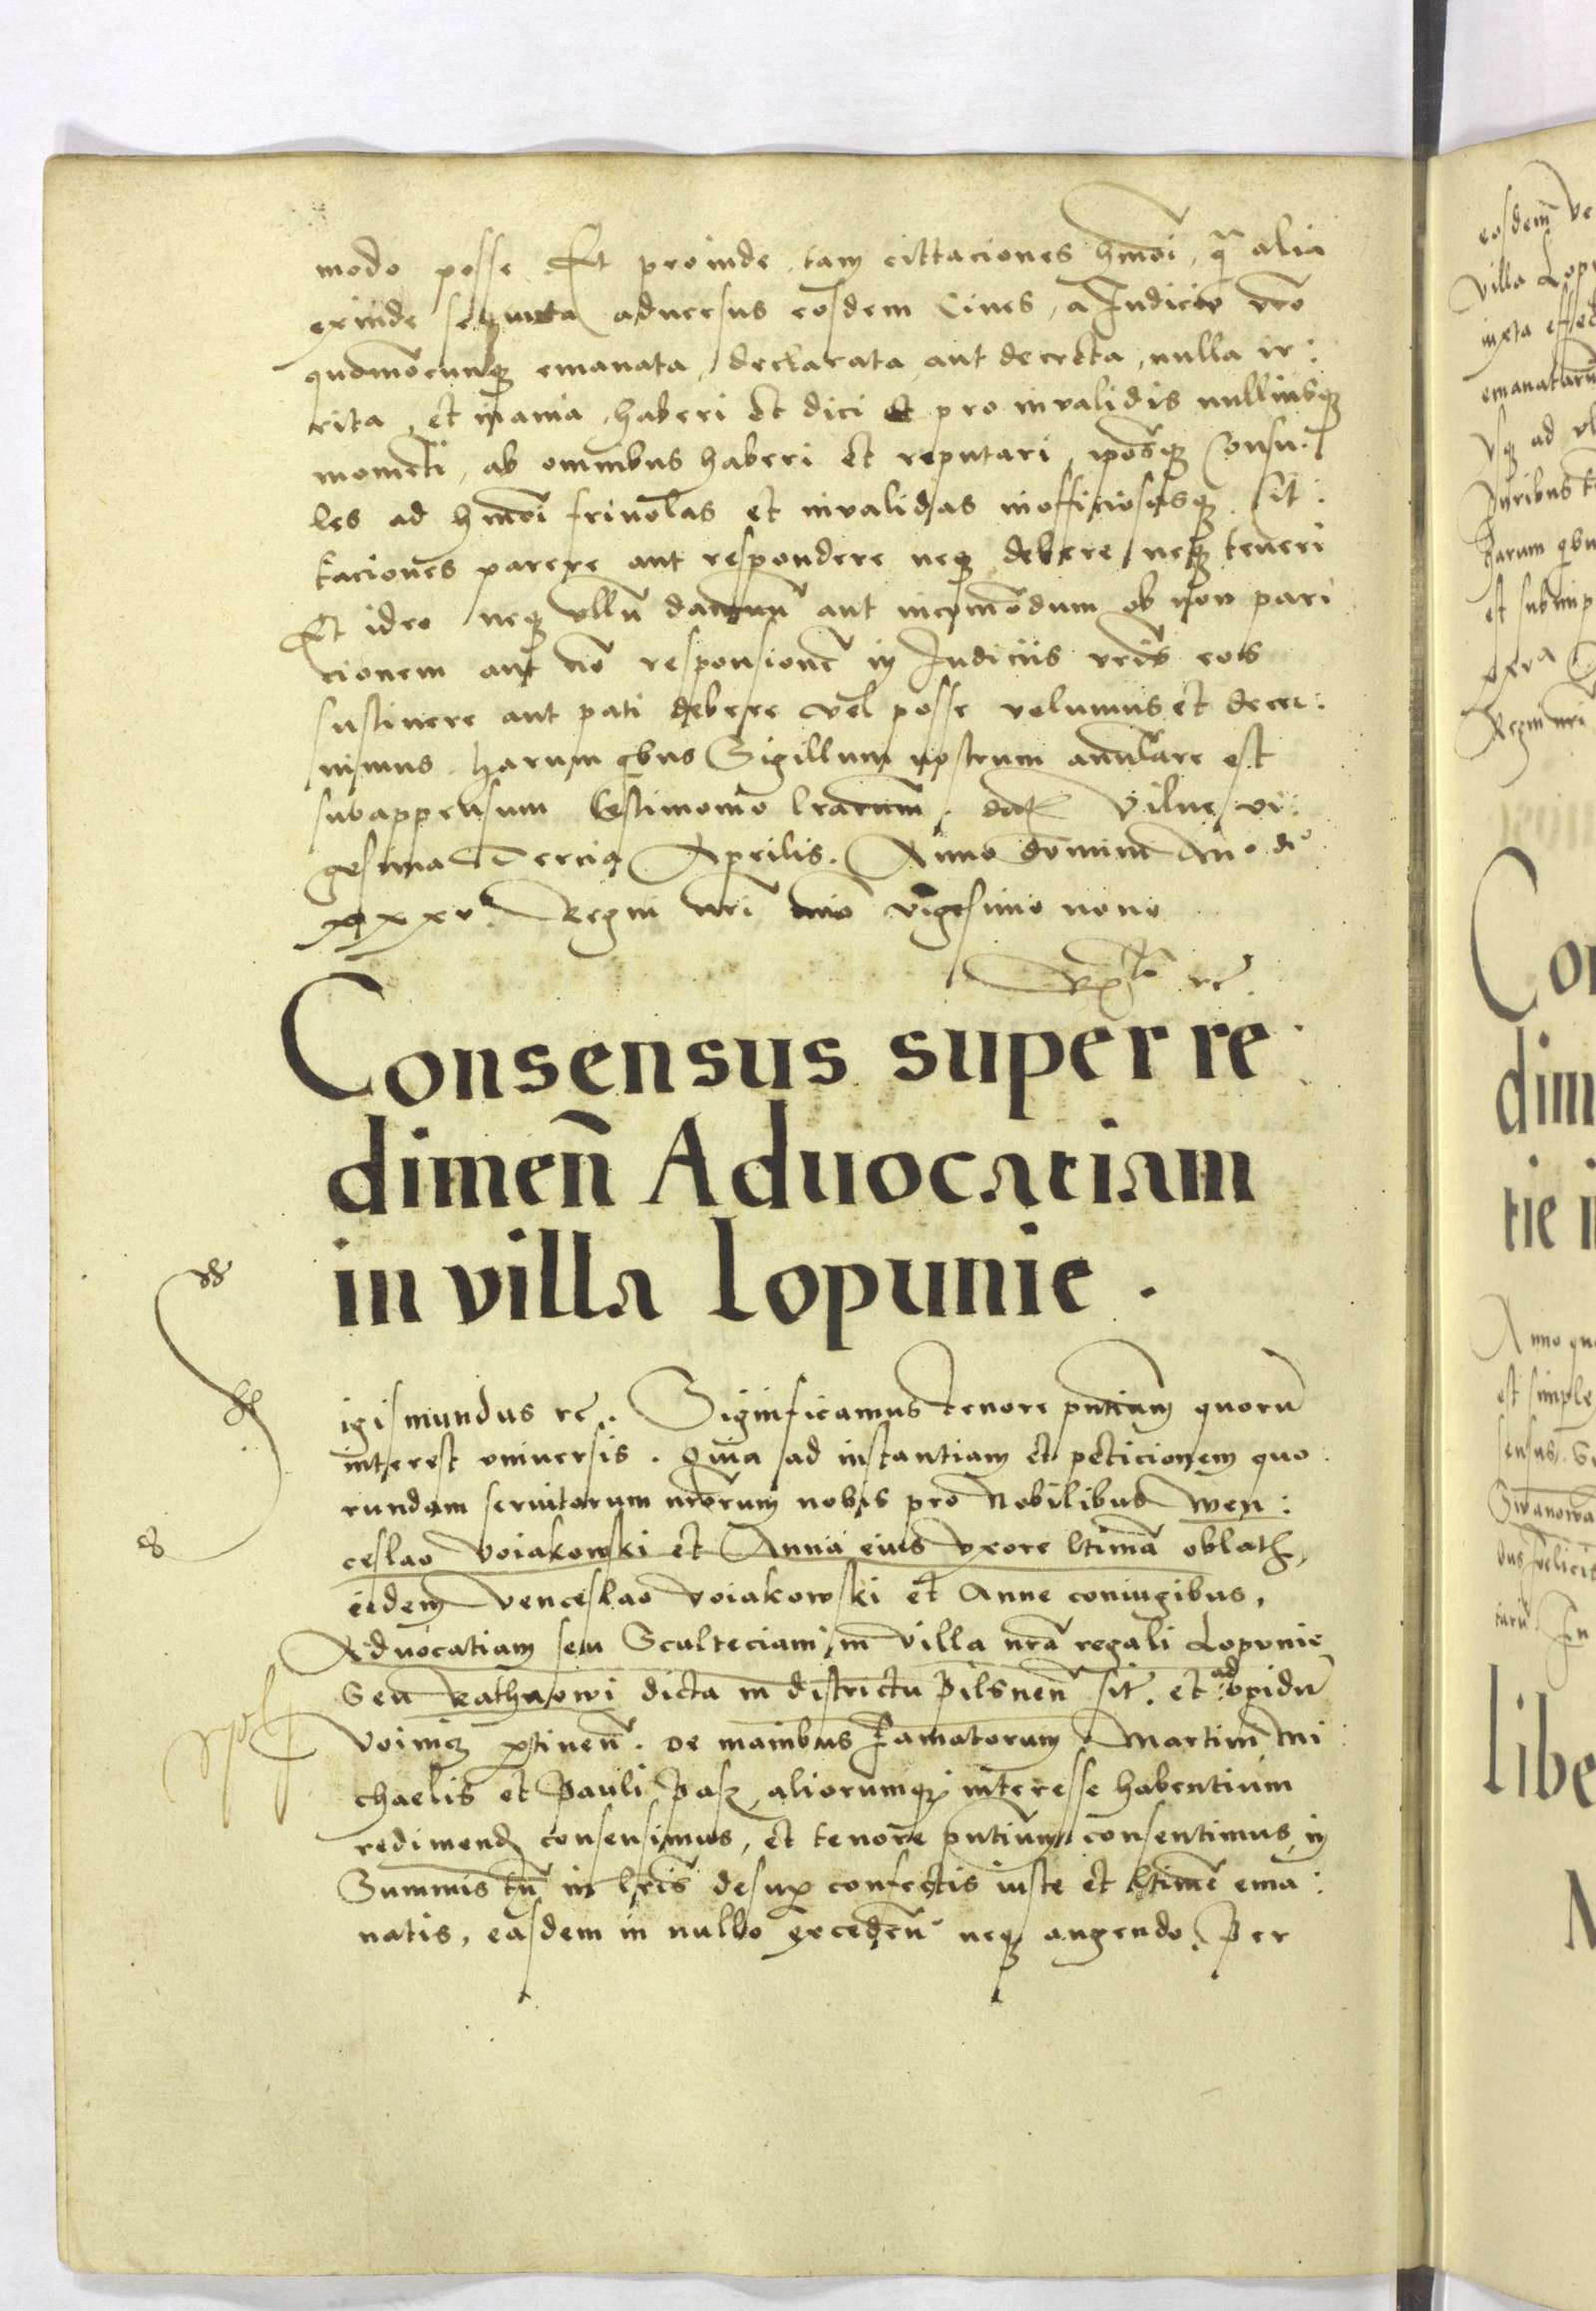 modo posse Et proinde tam cittaciones hmōi, q̄ alia
exinde sequuta aduersus eosdem Ciues, a Iudicio vrō
quomōcunq3 emanata, declarata aut decreta, nulla ir:
rita, et inania, haberi et dici et pro inualidis nulliusq3
momēti, ab omnibus haberi et reputari, ipōsq3 Consu:
les ad hmōi friuolas et inualidas inofficiosasq3 sit:
taciones parere aut respondere neq3 debere neq3 teneri
Et ideo neq3 vllū damnū aut incōmōdum ob non pari
cionem aut nō responsionē in Iudiciis vrīs eos
sustinere aut pati debere vel posse volumus et decer:
nimus. harum qbus Sigillum nostrum anulare est
subappensum testimonio lrārum. dat Vilne vi:
gesima Tercia Aprilis. Anno domini M. dº
xxxvº Regni nrī āno vigesimo nono
Consensus super re
dimen̄ Aduocatiam
in villa Lopunie.
igismundus rc̄. Significamus tenore pn̄tium quorū
interest vniuersis. Quia ad instantiam et peticionem quo
rundam seruitorum nrōrum nobis pro Nobilibus Wen:
ceslao Voiakowski et Anna eius vxore ltimā oblat,
eidem Venceslao Voiakowski et Anne coniugibus,
Aduocatiam seu Sculteciam in villa nrā regali Lopunie
Seu Rathnowi dicta in districtu Pilsnen̄ sit. et ad opidū
Voinicz ptinen̄. de manibus Famatorum Martini Mi
chaelis et Pauli Pasz, aliorumq3 interesse habentium
redimend consensimus, et tenore pn̄tium consentimus in
Summis tn̄ in lrīs desup confectis iuste et ltimē ema:
natis, easdem in nullo exceden̄ neq3 augendo. Per